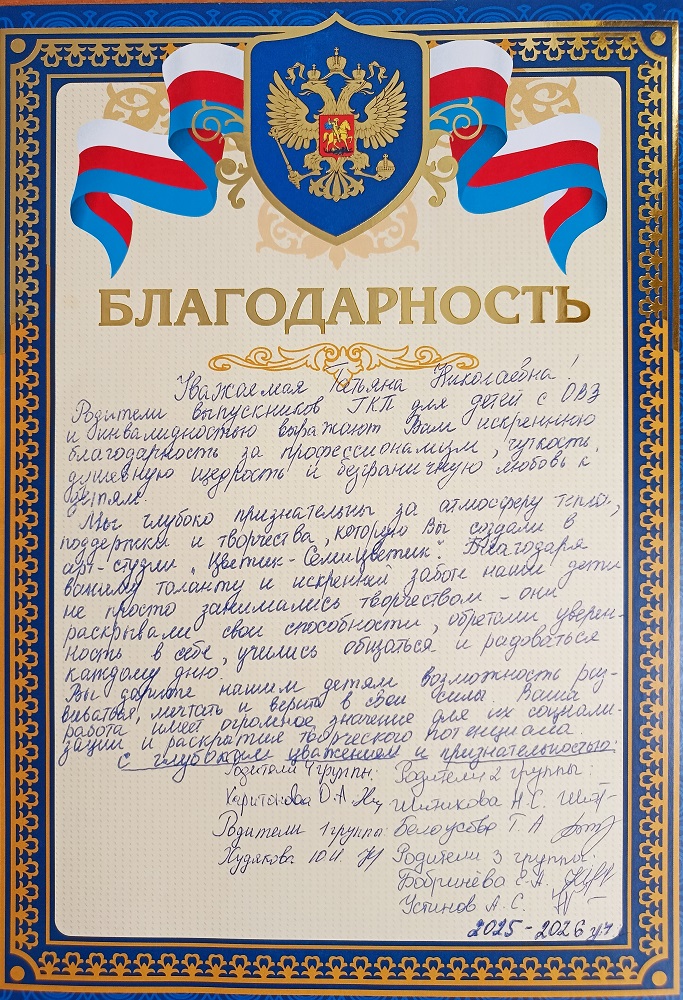 БЛАГОДАРНОСТЬ
Уважаемая Татьяна Николаевна!
Родители выпускников ГКП для детей с ОВЗ
и инвалидностью выражают Вам искреннюю
благодарность за профессионализм, чуткость,
душевную щедрость и безграничную любовь к
детям.
Мы глубоко признательны за атмосферу тепла,
поддержки и творчества, которую Вы создали в
арт-студии "Цветик-Семицветик". Благодаря
вашему таланту и искренней заботе наши дети
не просто занимались творчеством - они
раскрывали свои способности, обретали уверен-
ность в себе, учились общаться и радоваться
каждому дню.
Вы дарите нашим детям возможность раз-
виваться, мечтать и верить в свои силы. Ваша
работа имеет огромное значение для их социали-
зации и раскрытия творческого потенциала.
С глубоким уважением и признательностью:
Родители 4 группы: Родители 2 группы:
Харитонова О.А. Шитикова Н.С.
Родители 1 группа: Белоусова Т.А
Худякова Ю.И. Родители 3 группы:
Бобринёва Е.А.
Устинов А.С.
2025-2026 уч